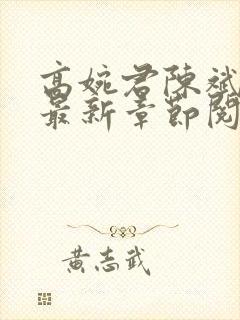 高婉君陈斌
最新章節閱
黃志武